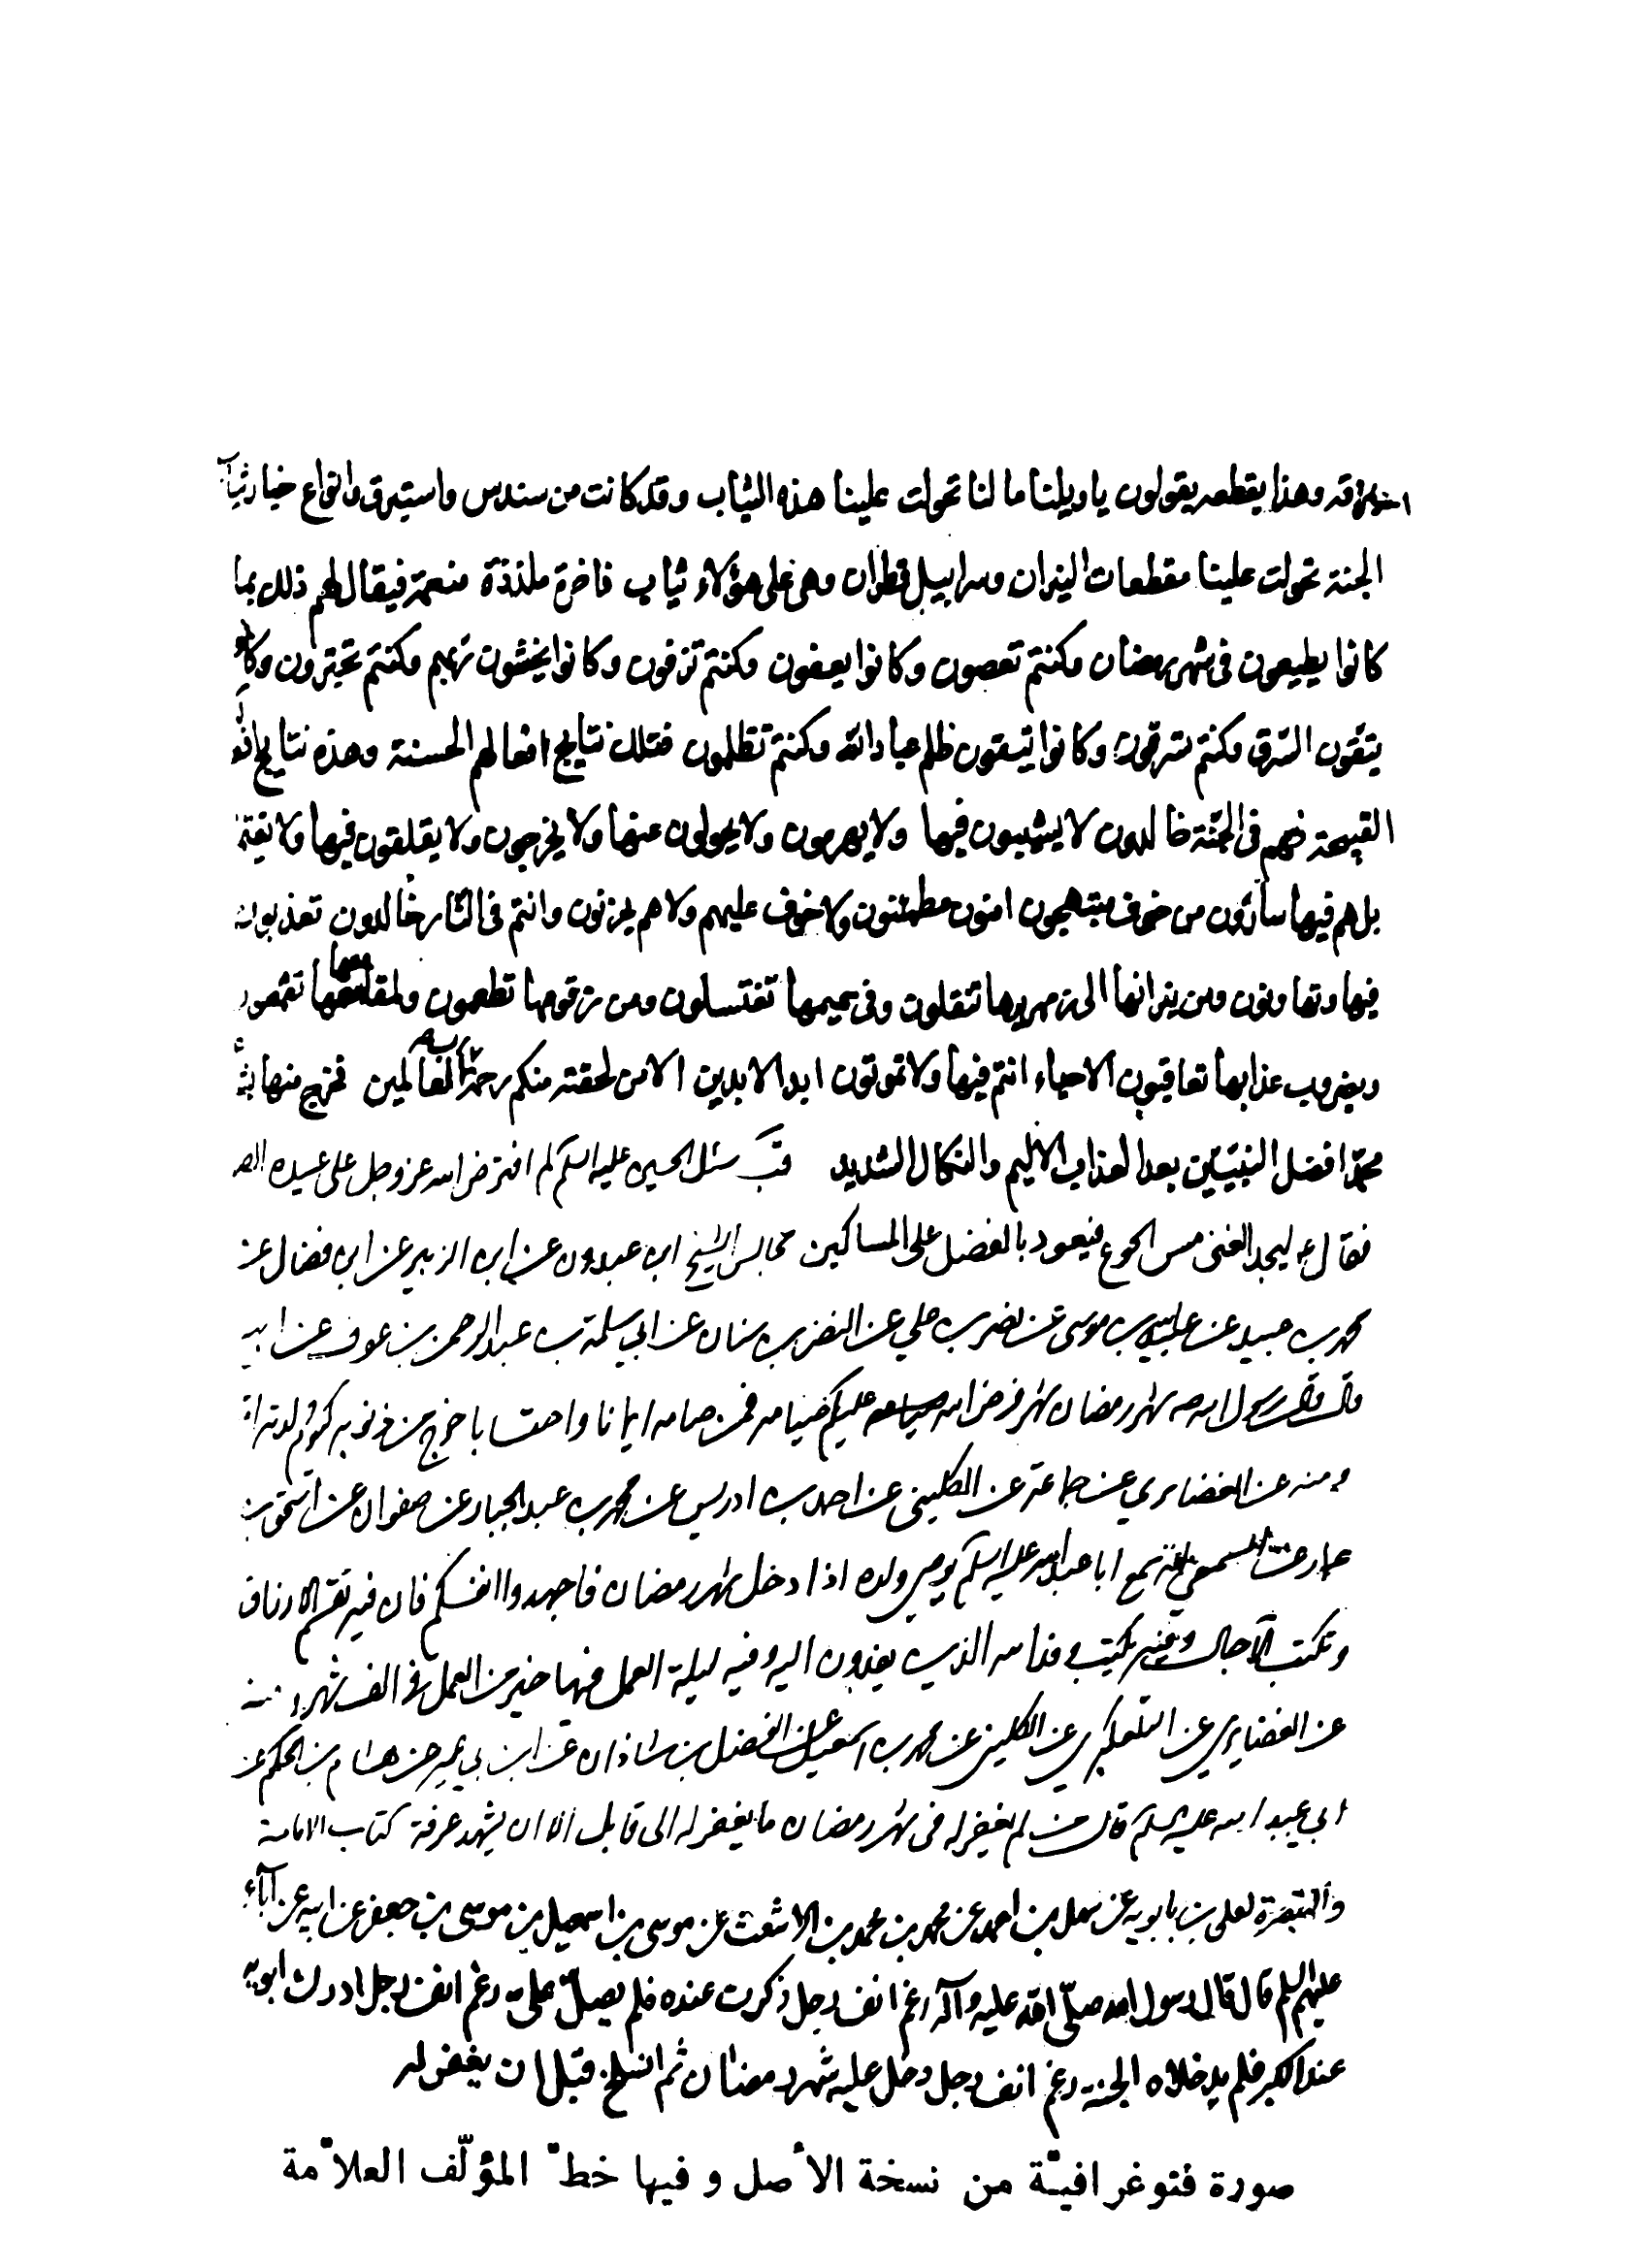 وهذا يقطعه يقولون يا ويلنا ما لنا تحولت علينا هذه الثياب وقد كانت من سندس واستبرق وانواع خيار ثياب
الجنة تحولت علينا مقطعات النيران وسرابيل قطران وهي على هؤلاء ثياب فاخرة ملذذة منعمة فيقال لهم ذلك بما
كانوا يطيعون في شهر رمضان وكنتم تعصون وكانوا يعفون وكنتم تزنون وكانوا يخشون ربهم وكنتم تجترون وكانوا
يتقون السرق وكنتم تسرقون وكانوا يتقون ظلم عباد الله وكنتم تظلمون فتلك نتايج افعالهم الحسنة وهذه نتايج
القبيحة فهم في الجنة خالدون لا يشيبون فيها ولا يهرمون ولا يحولون عنها ولا يخرجون ولا يقلقون فيها ولا
بل هم فيها سارون مبتهجون امنون مطمئنون ولا خوف عليهم ولا هم يحزنون وانتم في النار خالدون تعذبون
فيها وتهانون ومن نيرانها الى زمهريرها تنقلون وفي حميمها تغتسلون ومن زقومها تطعمون ولمقامعها تقمعون
وبضروب عذابها تعاقبون الاحياء انتم فيها ولا تموتون ابد الابدين الا من لحقته منكم رحمة رب العالمين فخرج منها
محمد افضل النبيين بعد العذاب الأليم والنكال الشديد قب سئل الحسين عليه السلم لم افترض الله عز وجل على عبيده
فقال ع ليجد الغني مس الجوع فيعود بالفضل على المساكين مجالس الشيخ ابن عبدون عن ابن الزبير عن ابن فضال عن
محمد بن عبيد عن بن موسى عن نصر بن علي عن النضر بن سنان عن ابي سلمة بن عبد الرحمن بن عوف عن ابيه
قال قال رسول الله ص شهر رمضان شهر فرض الله عليكم صيامه فمن صامه ايمانا واحتسابا خرج من ذنوبه كيوم ولدته
ومنه عن الغضايري عن جماعة عن الكليني عن احمد بن ادريس عن محمد بن عبد الجبار عن صفوان عن اسحق بن
عمار عن المسمعي انه سمع ابا عبد الله عليه السلم يوصي ولده اذا دخل شهر رمضان فاجهدوا انفسكم فان فيه تقسم الارزاق
وتكتب الآجال وفيه يكتب وفد الله الذين يفدون اليه وفيه ليلة العمل فيها خير من العمل في الف شهر ومنه
عن الغضايري عن التلعكبري عن الكليني عن محمد بن اسمعيل عن الفضل بن شاذان عن ابن ابي عمير عن هشام بن الحكم عن
ابي عبد الله عليه السلم قال من لم يغفر له في شهر رمضان ما يغفر له الى قابل الا ان يشهد عرفة كتاب الامامة
والتبصرة لعلي بن بابويه عن سهل بن احمد عن محمد بن محمد بن الاشعث عن موسى بن اسمعيل بن موسى بن جعفر عن ابيه عن آبائه
عليهم السلم قال قال رسول الله صلى الله عليه وآله رغم انف رجل ذكرت عنده فلم يصل علي رغم انف رجل ادرك ابويه
عند الكبر فلم يدخلاه الجنة رغم انف رجل دخل عليه شهر رمضان ثم انسلخ قبل ان يغفر له
صورة فتوغرافيّة من نسخة الأصل و فيها خطّ المؤلّف العلاّمة